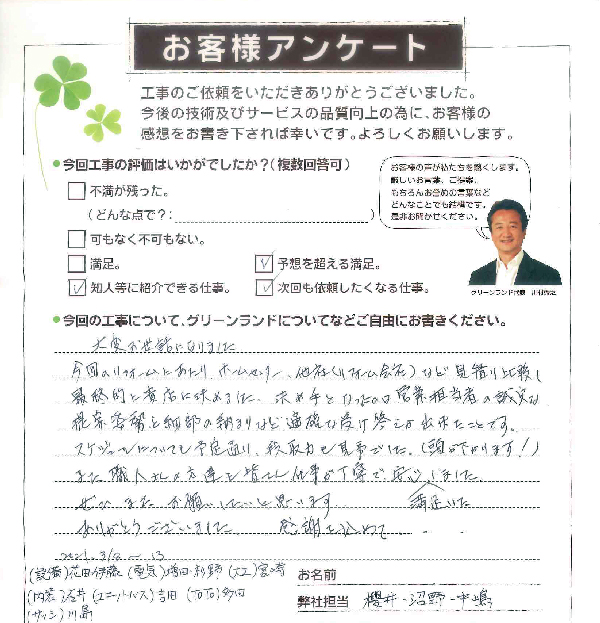 お客様アンケート
工事のご依頼をいただきありがとうございました。
今後の技術及びサービスの品質向上の為に、お客様の
感想をお書き下されば幸いです。よろしくお願いします。
今回工事の評価はいかがでしたか？(複数回答可)
不満が残った。
(どんな点で？: )
可もなく不可もない。
満足。
予想を超える満足。
知人等に紹介できる仕事。
次回も依頼したくなる仕事。
お客様の声が私たちを磨くします。
厳しいお言葉、ご提案、
もちろんお誉めの言葉など
どんなことでも結構です。
是非お聞かせください。
グリーンランド代表
今回の工事について、グリーンランドについてなどご自由にお書きください。
大変お世話になりました
今回のリフォームにあたり、ホームセンター、他社(リフォーム会社)など見積り比較し
最終的に貴店に決めました。決め手となったのは営業担当者の誠実な
提案容等と細部の納まりなど適確な受け答えが出来たことです。
スケジュールについても予定通り、段取力も見事でした。(頭が下がります!)
また職人さんの方達も皆さん仕事が丁寧で、安心しました。
ぜひまたお願いしたいと思います 満足した
ありがとうございました 感謝を込めて・・・
2021.3/2〜13
(設備)花田・伊藤 (電気)増田・杉野 (大工)宮崎
(内装)酒井 (ユニットバス)吉田 (TOTO)多田
(サッシ)川島
お名前
弊社担当 櫻井・沼野・中嶋